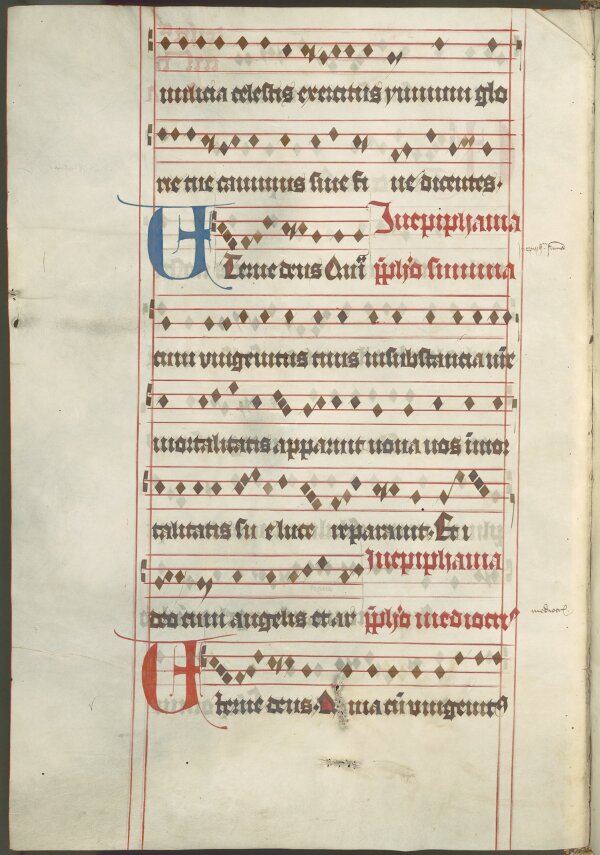 militia celestis exercitus ymnum glo
rie tue canimus sine fi ne dicentes.
In epiphania
Eterne deus Qui
p̄fh̄o summa
cum unigenitus tuus in substantia nr̄e
mortalitatis apparuit noua nos īmor
talitatis su e luce reparauit. Et i
In epiphania
deo cum angelis et ar
p̄fh̄o mediocris
mediocris
Eterne deus. Quia cū unigenitꝰ